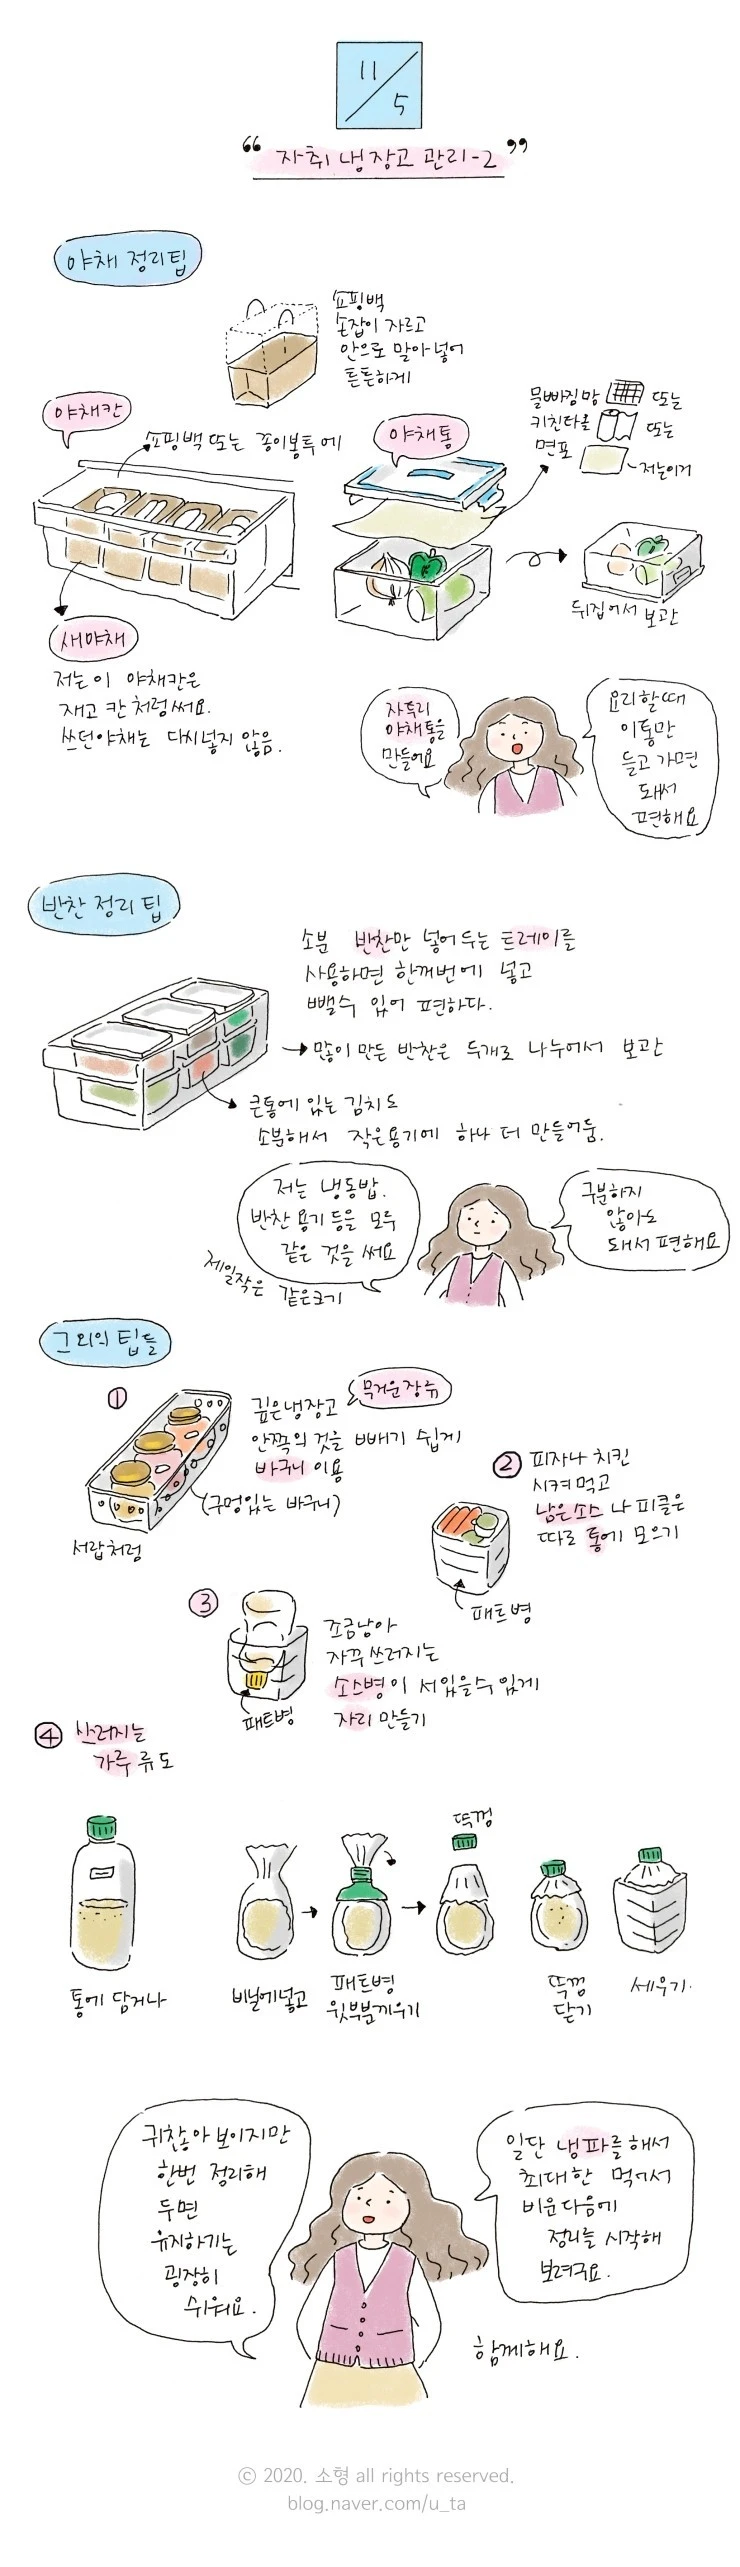 11/5
“자취 냉장고 관리-2”
야채 정리팁
쇼핑백
손잡이 자르고
안으로 말아넣어
튼튼하게
야채칸
쇼핑백 또는 종이봉투에
새야채
저는 이 야채칸은
재고 칸처럼써요.
쓰던야채는 다시넣지 않음.
야채통
물빠짐망 또는
키친타올 또는
면포
저는이거
뒤집어서 보관
자투리
야채통을
만들어요
요리할때
이통만
들고 가면
돼서
편해요
반찬 정리 팁
소분 반찬만 넣어두는 트레이를
사용하면 한꺼번에 넣고
뺄수 있어 편하다.
많이 만든 반찬은 두개로 나누어서 보관
큰통에 있는 김치도
소분해서 작은용기에 하나 더 만들어둠.
저는 냉동밥.
반찬 용기 등을 모두
같은 것을 써요
제일작은 같은크기
구분하지
않아도
돼서 편해요
그 외의 팁들
①
깊은냉장고
무거운장류
안쪽의 것을 빼기 쉽게
바구니 이용
(구멍있는 바구니)
서랍처럼
②
피자나 치킨
시켜먹고
남은소스 나 피클은
따로 통에 모으기
패트병
③
조금남아
자꾸 쓰러지는
소스병이 서있을수 있게
자리 만들기
패트병
④ 쓰러지는
가루 류도
통에 담거나
비닐에넣고
패트병
윗부분끼우기
뚜껑
뚜껑
닫기
세우기.
귀찮아 보이지만
한번 정리해
두면
유지하기는
굉장히
쉬워요.
일단 냉파를 해서
최대한 먹어서
비운다음에
정리를 시작해
보려구요.
함께해요.
© 2020. 소형 all rights reserved.
blog.naver.com/u_ta